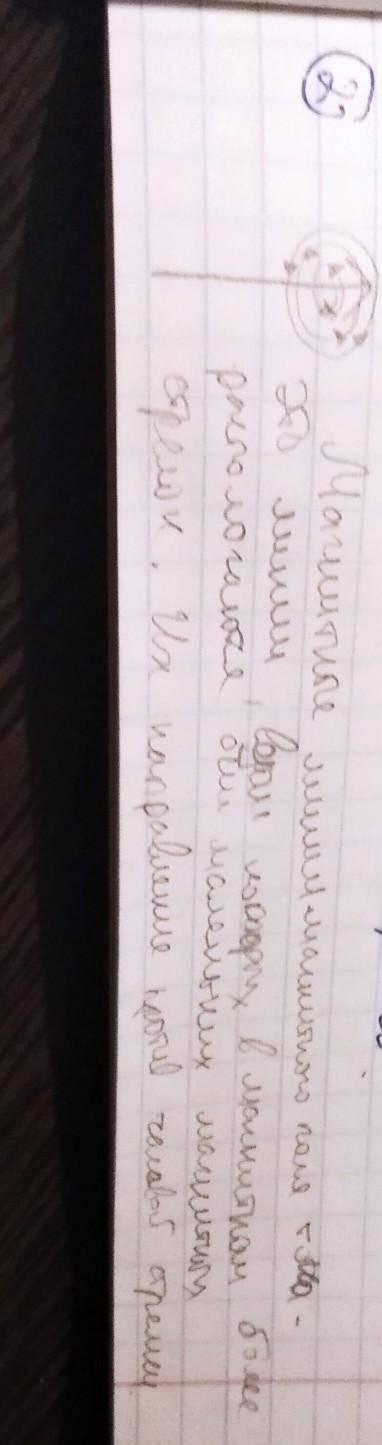 2)
Магнитные линии магнитного поля тока -
это линии, вдоль которых в магнитном поле
располагаются оси маленьких магнитных
стрелок. Их направление против часовой стрелки